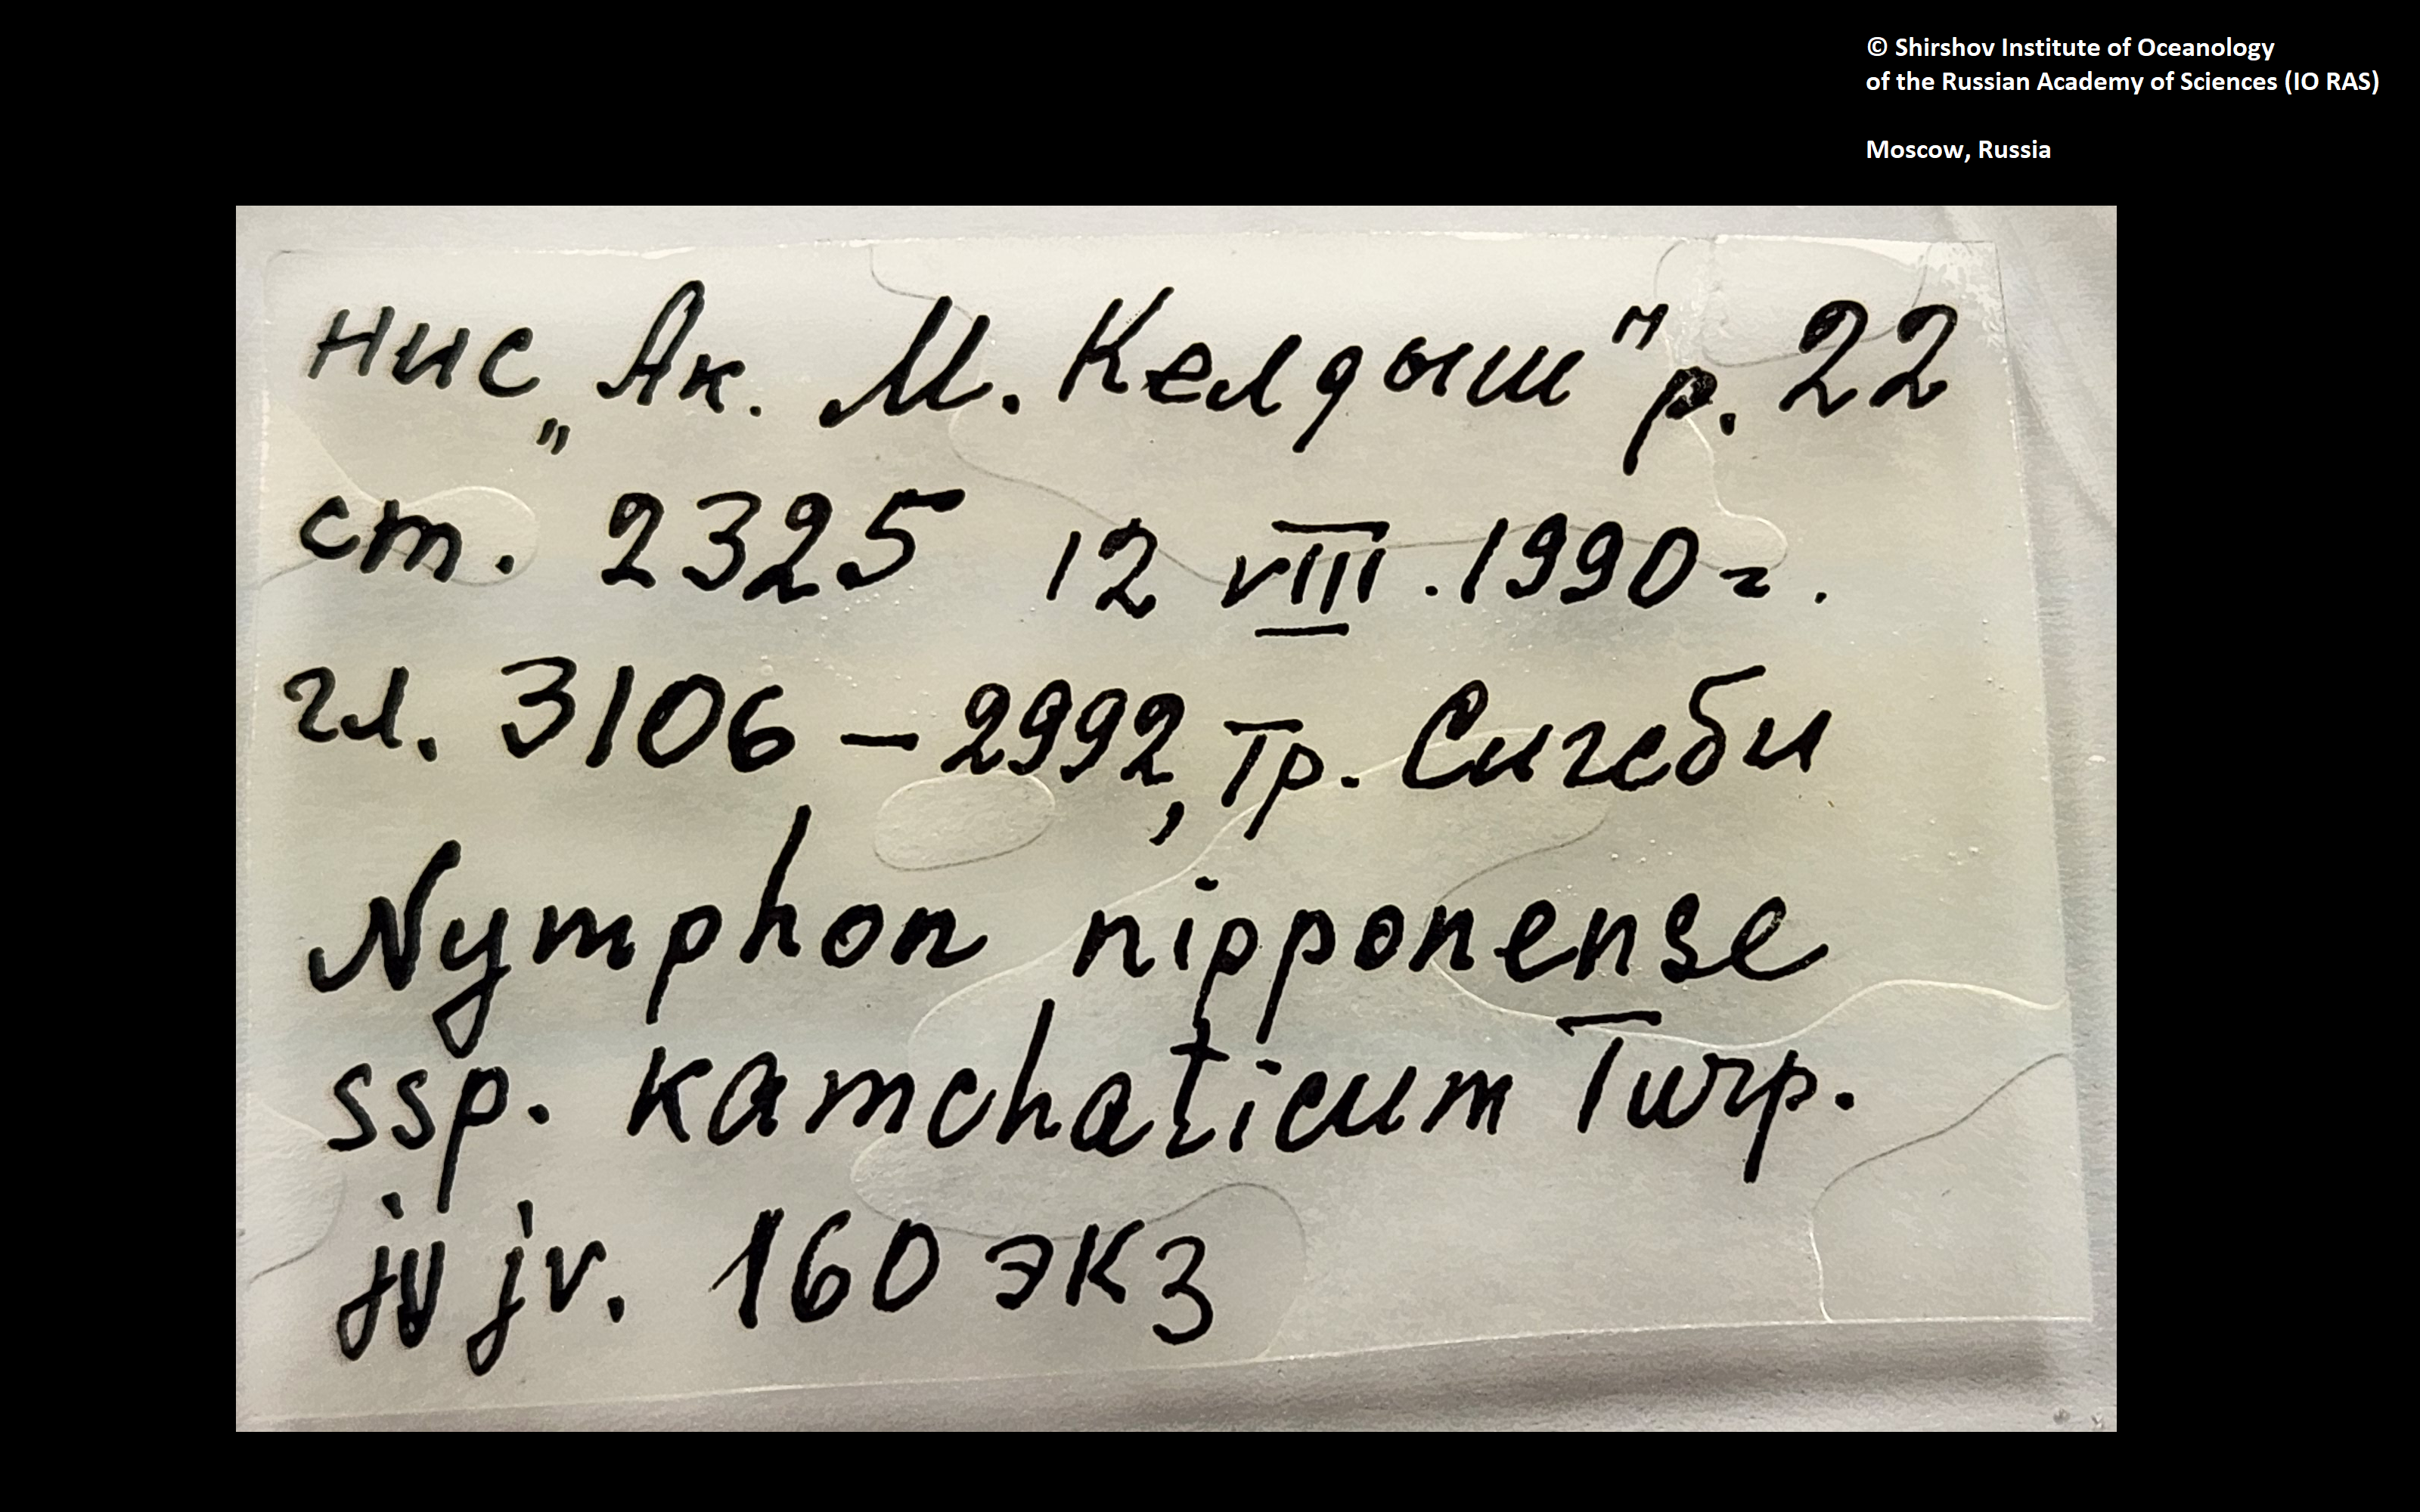 © Shirshov Institute of Oceanology
of the Russian Academy of Sciences (IO RAS)
Moscow, Russia
нис „Ак. М. Келдыш" р. 22
ст. 2325 12 VIII. 1990 г.
гл. 3106 – 2992, Тр. Сигсби
Nymphon nipponense
ssp. kamchaticum Turp.
jv jv. 160 экз